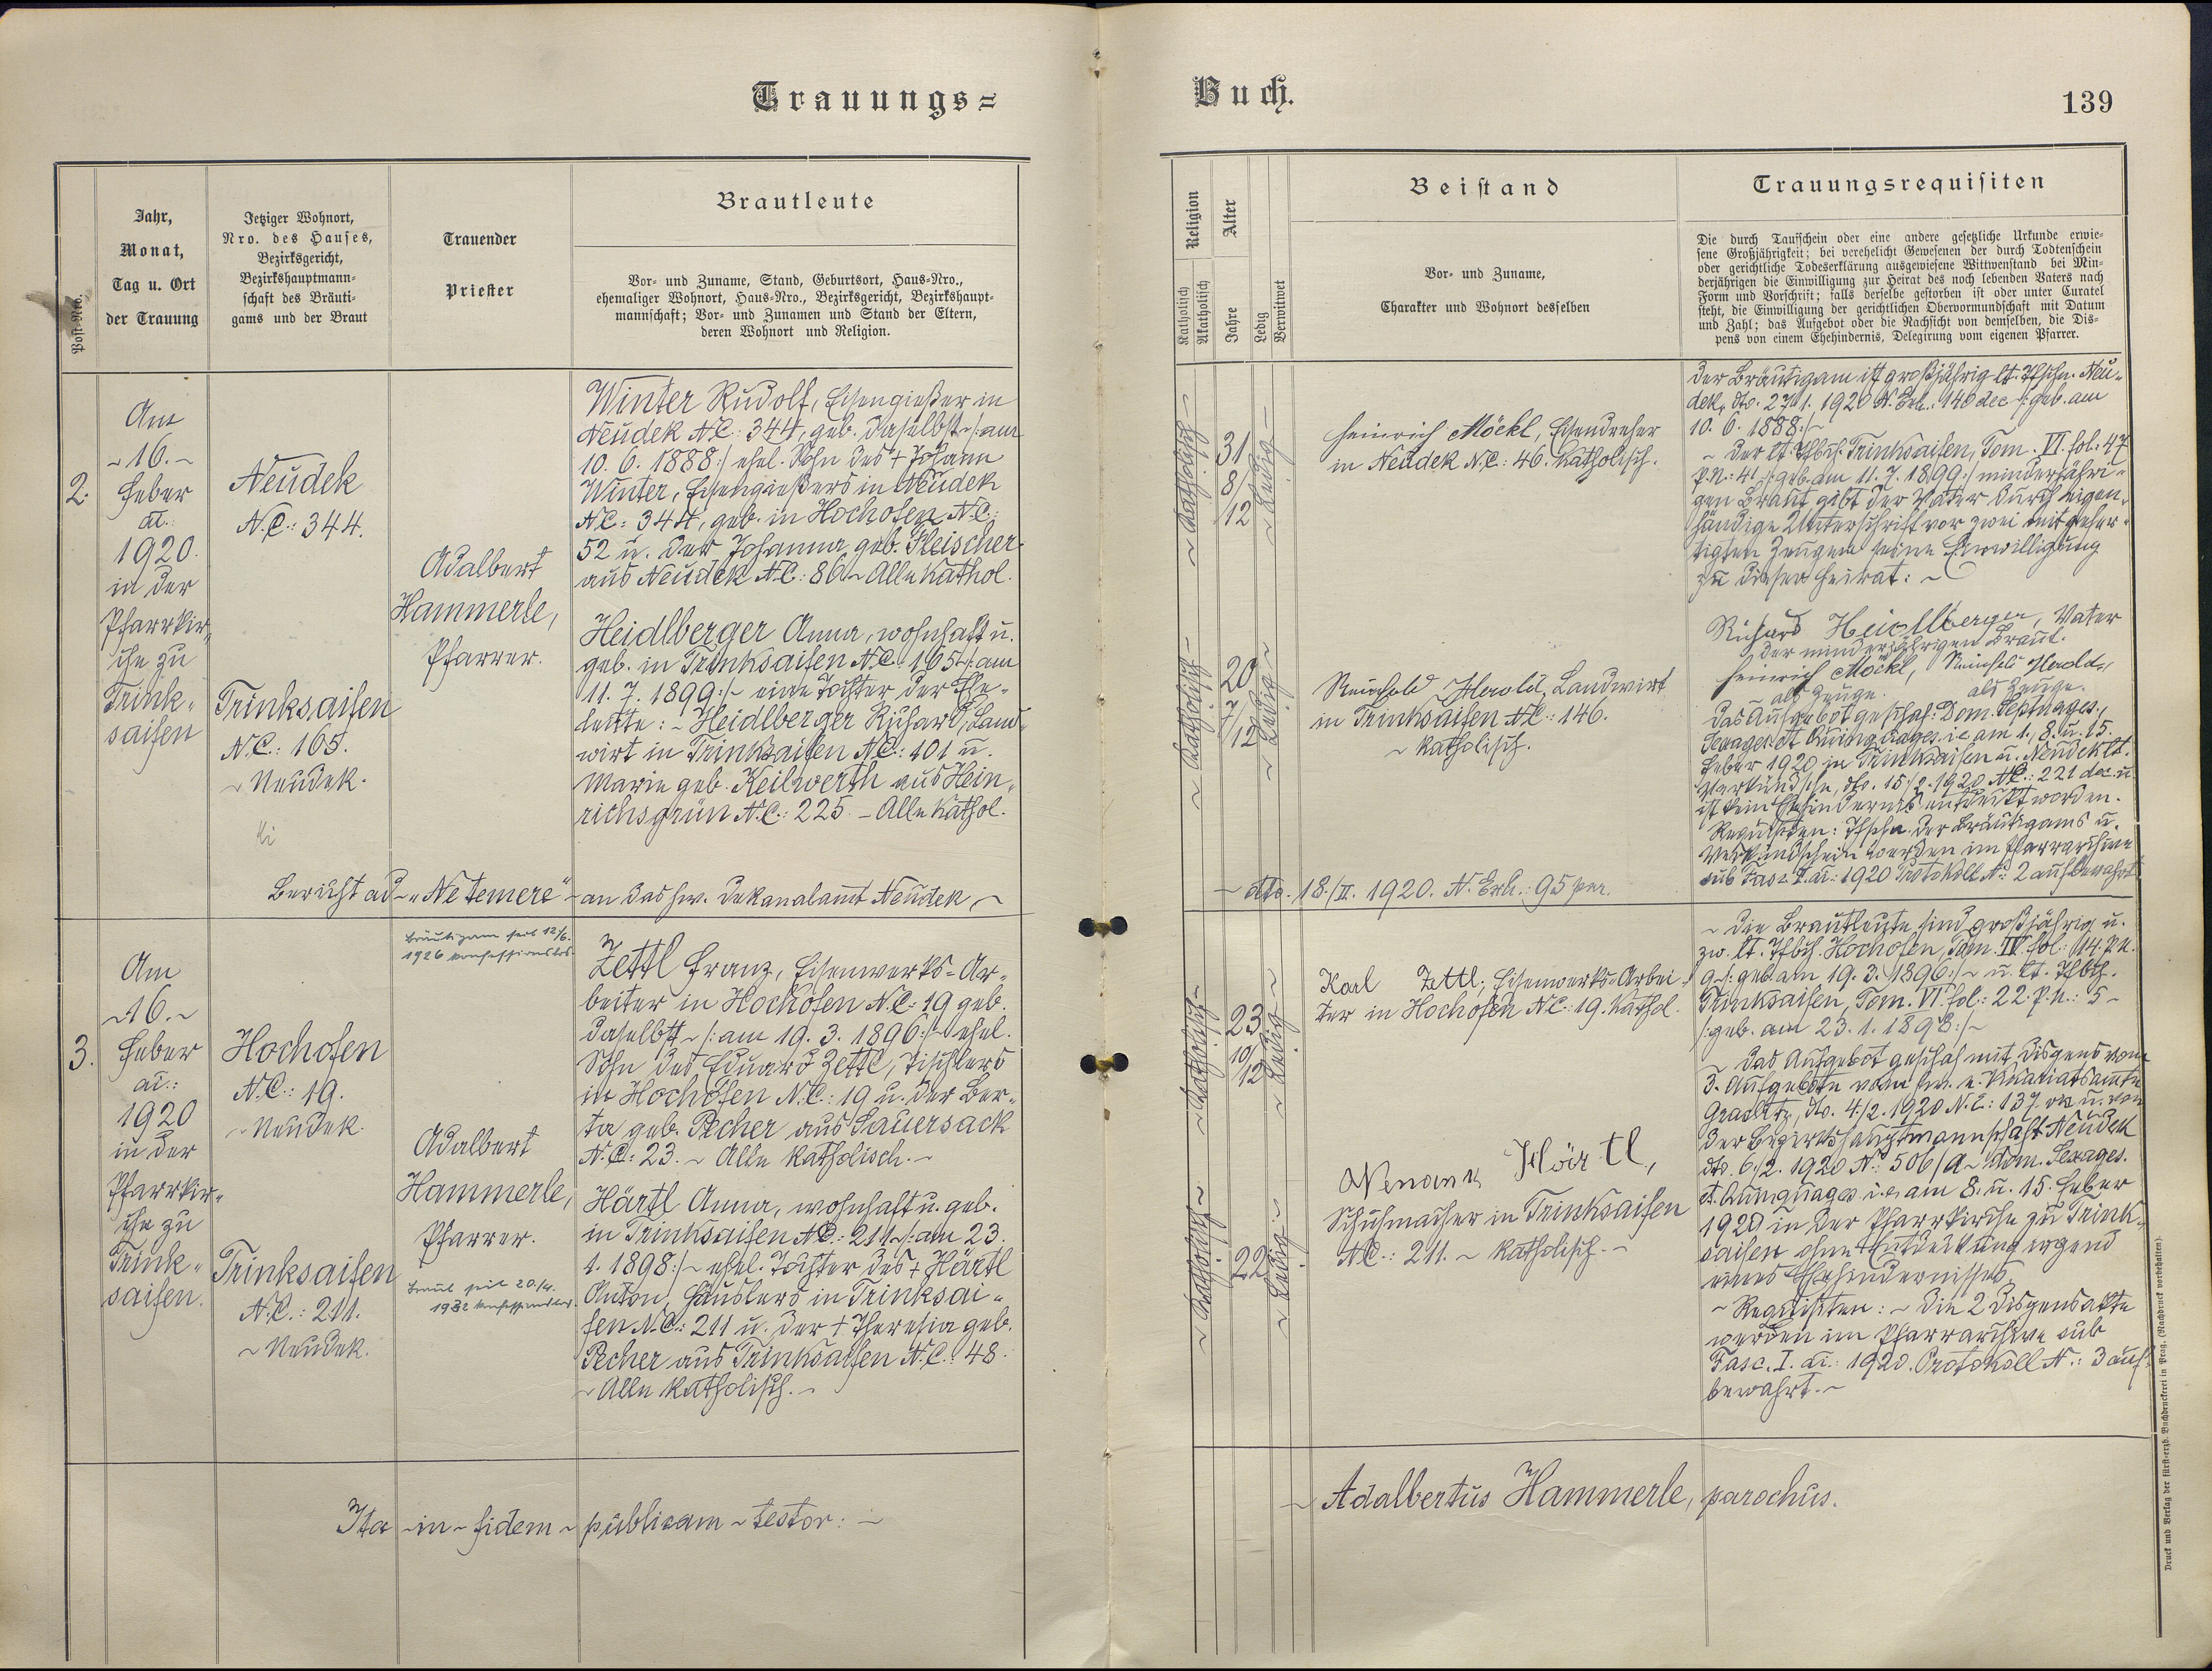 Trauungs=
Buch.
139
Post-Nro.
Jahr,
Monat,
Tag u. Ort
der Trauung
Jetziger Wohnort,
Nro. des Hauses,
Bezirksgericht,
Bezirkshauptmann-
schaft des Bräuti-
gams und der Braut
Trauender
Priester
Brautleute
Vor- und Zuname, Stand, Geburtsort, Haus-Nro.,
ehemaliger Wohnort, Haus-Nro., Bezirksgericht, Bezirkshaupt-
mannschaft; Vor- und Zunamen und Stand der Eltern,
deren Wohnort und Religion.
Religion
Katholisch
Akatholisch
Alter
Jahre
Ledig
Verwitwet
Beistand
Vor- und Zuname,
Charakter und Wohnort desselben
Trauungsrequisiten
Die durch Taufschein oder eine andere gesetzliche Urkunde erwie-
sene Großjährigkeit; bei verehelicht Gewesenen der durch Todtenschein
oder gerichtliche Todeserklärung ausgewiesene Wittwenstand bei Min-
derjährigen die Einwilligung zur Heirat des noch lebenden Vaters nach
Form und Vorschrift; falls derselbe gestorben ist oder unter Curatel
steht, die Einwilligung der gerichtlichen Obervormundschaft mit Datum
und Zahl; das Aufgebot oder die Nachsicht von demselben, die Dis-
pens von einem Ehehindernis, Delegirung vom eigenen Pfarrer.
2.
Am
~16.~
Feber
ai.:
1920.
in der
Pfarrkir-
che zu
Trink-
saifen
Neudek
N.C.: 344.
Trinksaifen
N.C.: 165.
~ Neudek.
Adalbert
Hammerle,
Pfarrer.
Winter Rudolf, Eisengießer in
Neudek N.C.: 344, geb. daselbst ~/: am
10. 6. 1888:/ ehel. Sohn des + Johann
Winter, Eisengießers in Neudek
N.C.: 344, geb. in Hochofen N.C.:
52 u. der Johanna geb. Fleischer
aus Neudek N.C.: 86 ~ Alle kathol.
Heidlberger Anna, wohnhaft u.
geb. in Trinksaifen N.C.: 165 ~/: am
11. 7. 1899:/~ eine Tochter der Ehe-
leute: ~ Heidlberger Richard, Land-
wirt in Trinksaifen N.C.: 101 u.
Marie geb. Keilwerth aus Hein-
richsgrün N.C.: 225. ~ Alle kathol.
~ Katholisch ~
31
8/
12
~ Ledig ~
Heinrich Möckl, Eisendreher
in Neudek N.C.: 46. Katholisch.
~ Katholisch ~
20
7/
12
~ Ledig ~
Reinhold Herold, Landwirt
in Trinksaifen N.C.: 146.
~ Katholisch.
Der Bräutigam ist großjährig lt. Tfschn. Neu-
dek, dto. 27/1. 1920 N. Exh.: 140 dec /: geb. am
10. 6. 1888:/~
~ Der lt. Tfbch. Trinksaifen, Tom. VI. fol. 47
p.n.: 41 /: geb. am 11. 7. 1899:/ minderjähri-
gen Braut gibt der Vater durch eigen-
händige Unterschrift vor zwei mitgefer-
tigten Zeugen seine Einwilligung
zu dieser Heirat: ~
Richard Heidlberger, Vater
der minderjährigen Braut.
Heinrich Möckl, Reinhold Herold,
als Zeuge. als Zeuge.
Das Aufgebot geschah: Dom. Septuages.,
Sexages. et Quinquages. i.e. am 1., 8. u. 15.
Feber 1920 in Trinksaifen u. Neudek lt.
Verkündschn. dto. 15/2. 1920 N.E.: 221 dec. u.
ist kein Ehehindernis entdeckt worden.
Requisiten: Tfschn. der Bräutigams u.
Verkündschein werden im Pfarrarchive
sub Fasc. I. ai.: 1920 Protokoll N: 2 aufbewahrt.
Bericht ad ~ „Ne temere" ~ an das hw. Dekanalamt Neudek, ~
~ dto. 18./II. 1920. N. Exh.: 95 par.
3.
Am
~16.~
Feber
ai.:
1920
in der
Pfarrkir-
che zu
Trink-
saifen.
Hochofen
N.C.: 19.
~ Neudek.
Trinksaifen
N.C.: 211.
~ Neudek.
Bräutigam seit 12/6.
1926 konfessionslos.
Adalbert
Hammerle,
Pfarrer.
Braut seit 20./4.
1932 konfessionslos.
Zettl Franz, Eisenwerks-Ar-
beiter in Hochofen N.C.: 19 geb.
daselbst ~/: am 19. 3. 1896:/~ ehel.
Sohn des Eduard Zettl, Tischlers
in Hochofen N.C.: 19 u. der Ber-
ta geb. Pecher aus Sauersack
N.C.: 23. ~ Alle katholisch. ~
Härtl Anna, wohnhaft u. geb.
in Trinksaifen N.C.: 211 ~/: am 23.
1. 1898:/~ ehel. Tochter des + Härtl
Anton, Häuslers in Trinksai-
fen N.C.: 211 u. der + Theresia geb.
Pecher aus Trinksaifen N.C.: 48.
~ Alle katholisch. ~
~ Katholisch ~
23
10/
12
~ Ledig ~
Karl Zettl, Eisenwerks-Arbei-
ter in Hochofen N.C.: 19. Kathol.
~ Katholisch ~
22
~ Ledig ~
Härtl,
Schuhmacher in Trinksaifen
N.C.: 211. ~ Katholisch. ~
~ Die Brautleute sind großjährig u.
zw. lt. Tfbch. Hochofen, Tom. IV. fol: 114. p.n.
9 ~/: geb. am 19. 3. 1896:/~ u. lt. Tfbch.
Trinksaifen, Tom. VI. fol.: 22. p.n.: 5 ~
/: geb. am 23. 1. 1898:/~
~ Das Aufgebot geschah mit Dispens vom
3. Aufgebote vom hw. e. Vikariatsamte
Graslitz, dto. 4./2. 1920 N.E.: 137. u. von
der Bezirkshauptmannschaft Neudek
dto. 6./2. 1920 N: 506/A ~ Dom. Sexages.
et. Quinquages. i.e. am 8. u. 15. Feber
1920 in der Pfarrkirche zu Trink-
saifen ohne Entdeckung irgend
eines Ehehindernisses
~ Requisiten: ~ Die 2 Dispensakte
werden im Pfarrarchive sub
Fasc. I. ai.: 1920. Protokoll N.: 3 auf-
bewahrt. ~
Ita ~ in ~ fidem ~ publicam ~ testor: ~
~ Adalbertus Hammerle, parochus.
Druck und Verlag der fürst-erzb. Buchdruckerei in Prag. (Nachdruck vorbehalten).